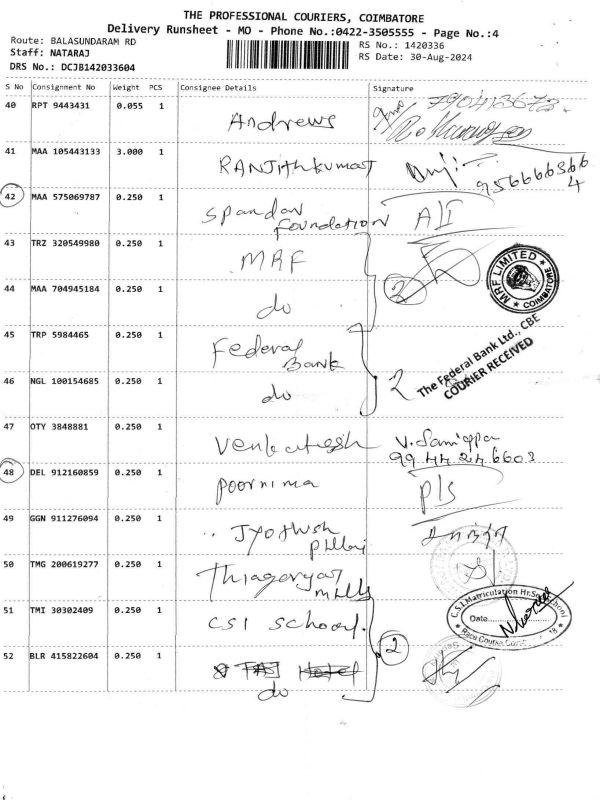 THE PROFESSIONAL COURIERS, COIMBATORE
Delivery Runsheet - MO - Phone No.:0422-3505555 - Page No.:4
Route: BALASUNDARAM RD
RS No.: 1420336
Staff: NATARAJ
RS Date: 30-Aug-2024
DRS No.: DCJB142033604
S No Consignment No Weight PCS Consignee Details Signature
40 RPT 9443431 0.055 1 Andrews
41 MAA 105443133 3.000 1 RANJithkumar
42 MAA 575069787 0.250 1 Spandan
Foundation
43 TRZ 320549980 0.250 1 MRF
2
MRF LIMITED
COIMBATORE
44 MAA 704945184 0.250 1 do
45 TRP 5984465 0.250 1 Federal
Bank
2
The Federal Bank Ltd., CBE
COURIER RECEIVED
46 NGL 100154685 0.250 1 do
47 OTY 3848881 0.250 1 Venkatesh
99 44 24 6603
48 DEL 912160859 0.250 1 Poornima P/S
49 GGN 911276094 0.250 1 Jyothish
Pillai
50 TMG 200619277 0.250 1 Thiagarajar
Mills
51 TMI 30302409 0.250 1 CSI School.
C.S.I. Matriculation Hr.Sec.School
Date
2
52 BLR 415822604 0.250 1 do